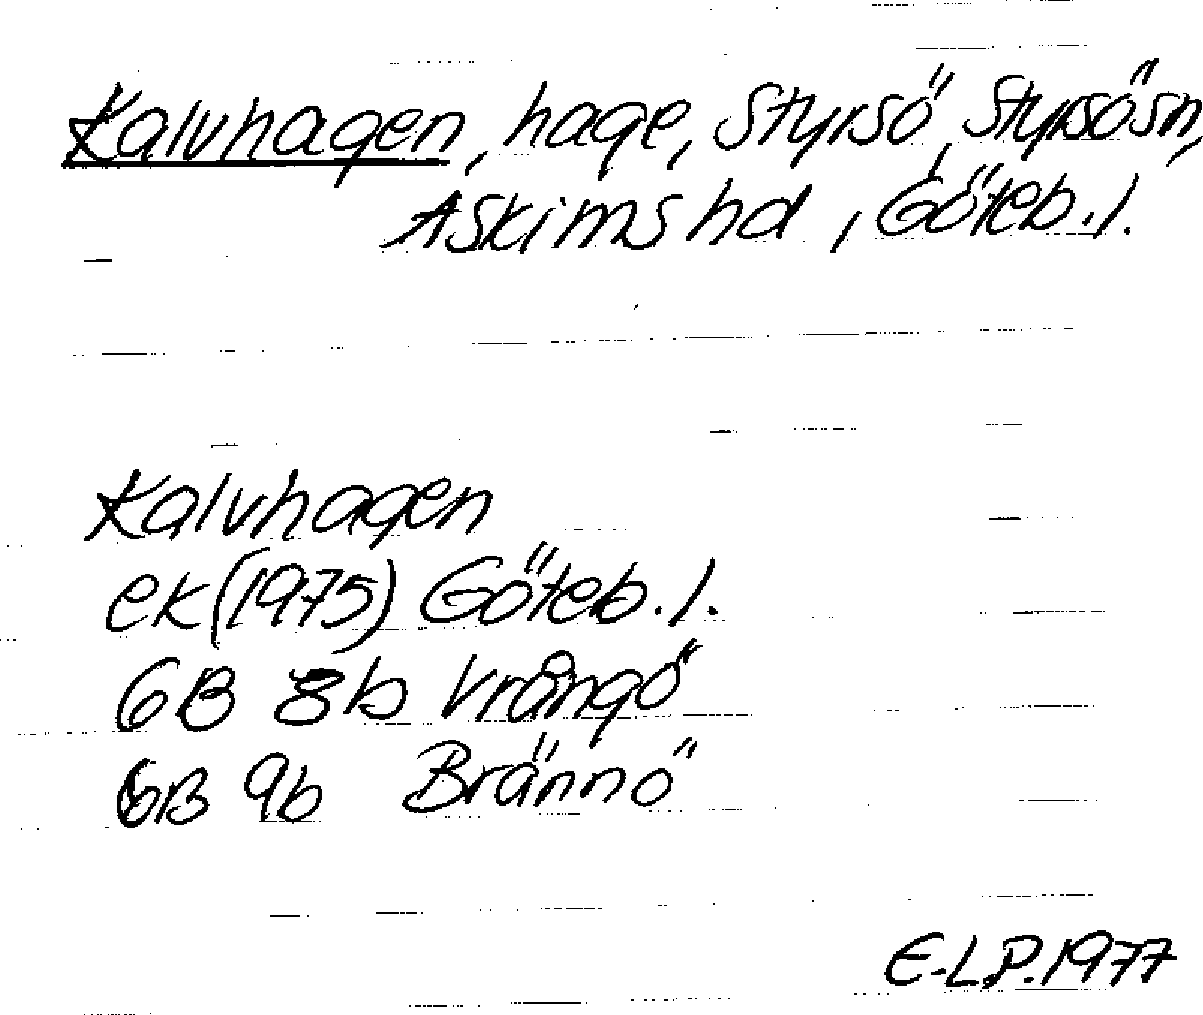 Kalvhagen, hage, Styrsö, Styrsösn,
Askims hd, Göteb. l.
Kalvhagen
ek (1975) Göteb. l.
6B 8b Vrångö
6B 9b Brännö
E-L.P. 1977